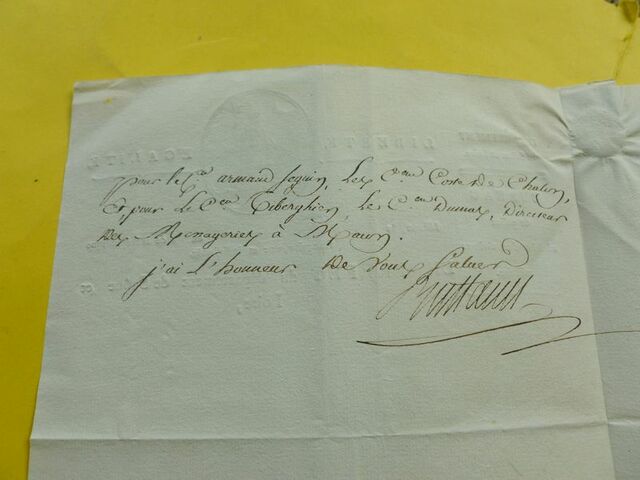 pour le C.en armand Seguin, Le C.en Coste De Chalon,
Et pour Le C.en Tiberghien, le C.en Dumas, Directeur
Des Messageries à
j'ai L'honneur De Vous Saluer
LIBERTÉ
EGALITÉ